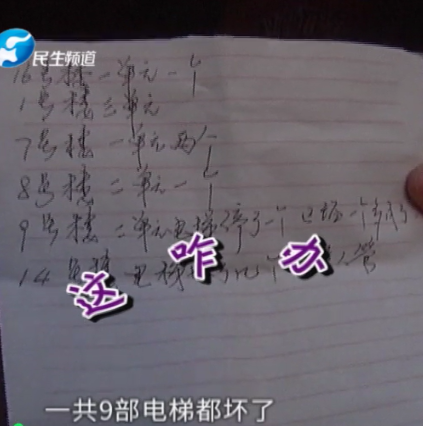 民生频道
16号楼一单元一个
1号楼三单元
7号楼一单元两个
8号楼二单元一个
9号楼二单元电梯停了一个
14 电梯
这咋办
一共9部电梯都坏了